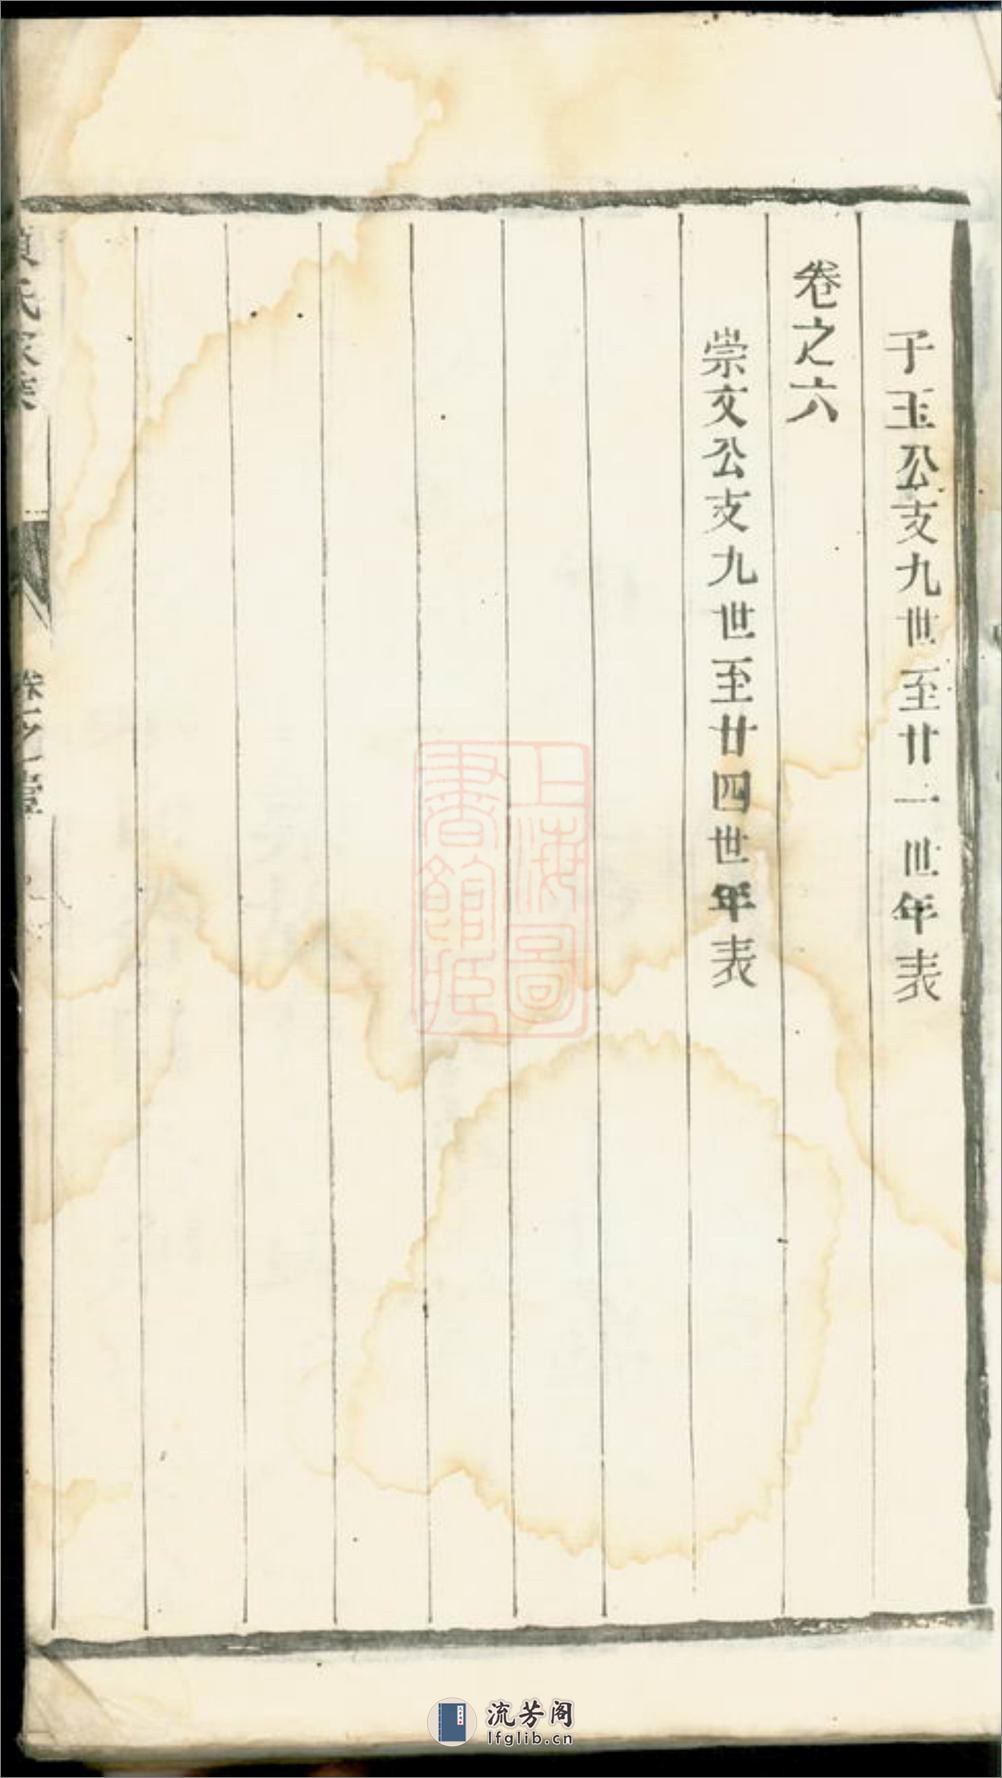 子玉公支九世至廿一世年表
卷之六
崇文公支九世至廿四世年表
氏家
卷之一
上海圖
書館藏
流芳阁
lfglib.cn